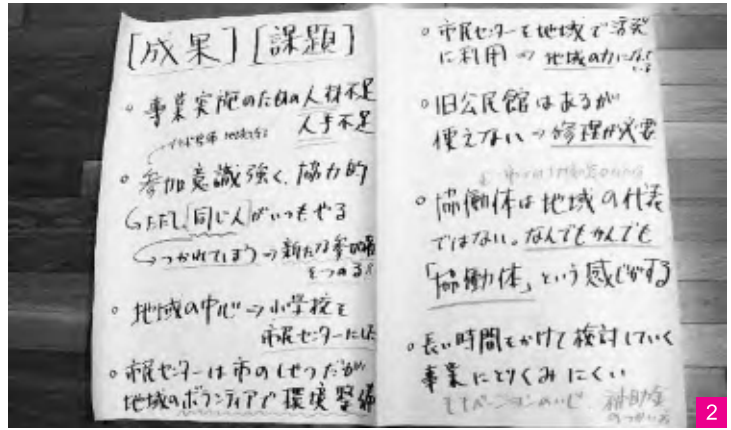 [成果][課題]
。事業実施のための人材不足
人手不足
。参加意識強く、協力的
↳ただし「同じ人」がいつもやる
↳つかれてしまう⇒新たな参加者
をつのる!!
。地域の中心⇒小学校を
市民センターにした
。市民センターは市のしせつだが
地域のボランティアで環境整備
。市民センターを地域で活発
に利用⇒地域の力になって
いる
。旧公民館はあるが
使えない⇒修理が必要
。協働体は地域の代表
ではない。なんでもかんでも
「協働体」という感じがする
。長い時間をかけて検討していく
事業にとりくみにくい
補助金
のつかい方
2